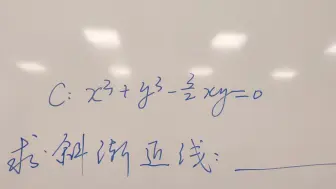 C: x³+y³-\frac{3}{2}xy=0
求斜渐近线:______